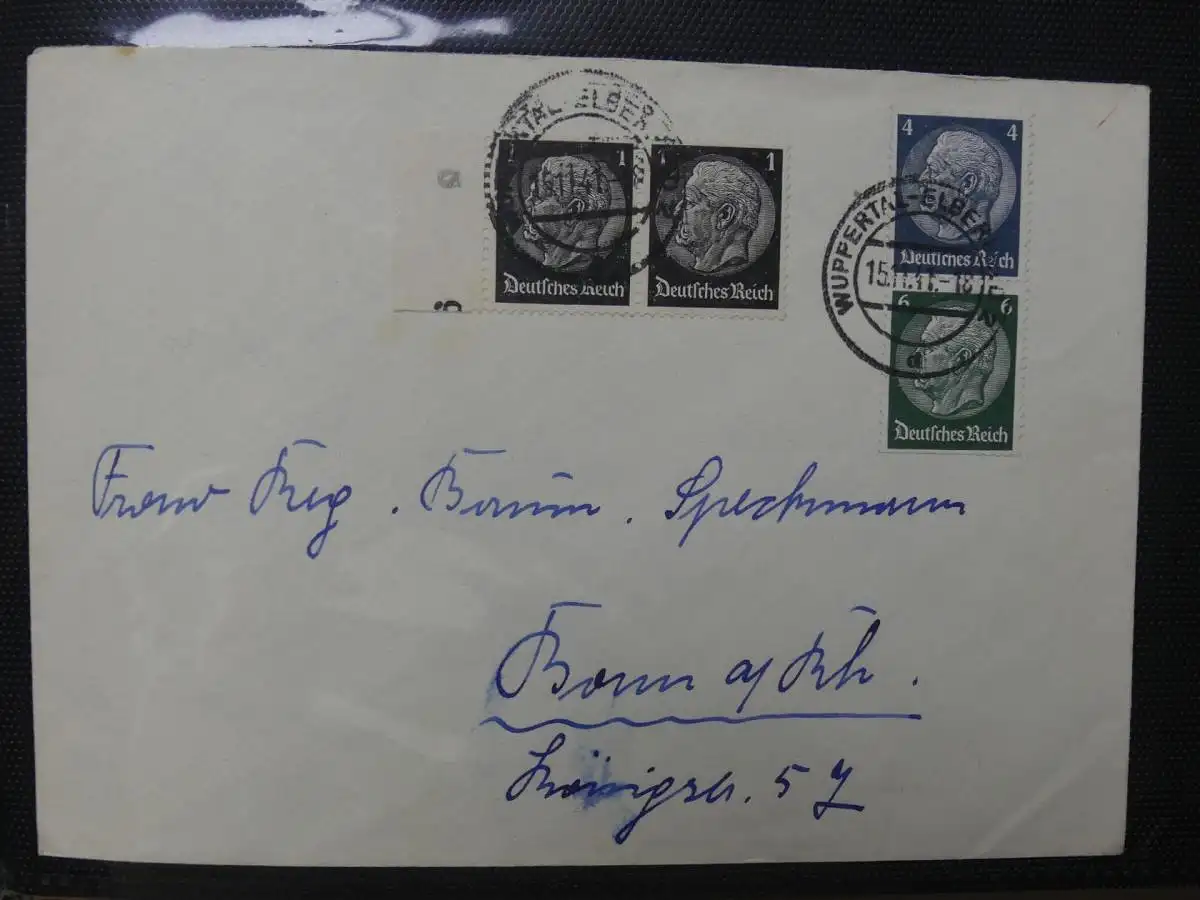 WUPPERTAL-ELBER
15.11.41.-18
2
d
1 1
Deutsches Reich
1
Deutsches Reich
4 4
Deutsches Reich
6 6
Deutsches Reich
Frau Reg. Baum. Speckmann
Bonn a/Rh.
Königstr. 57